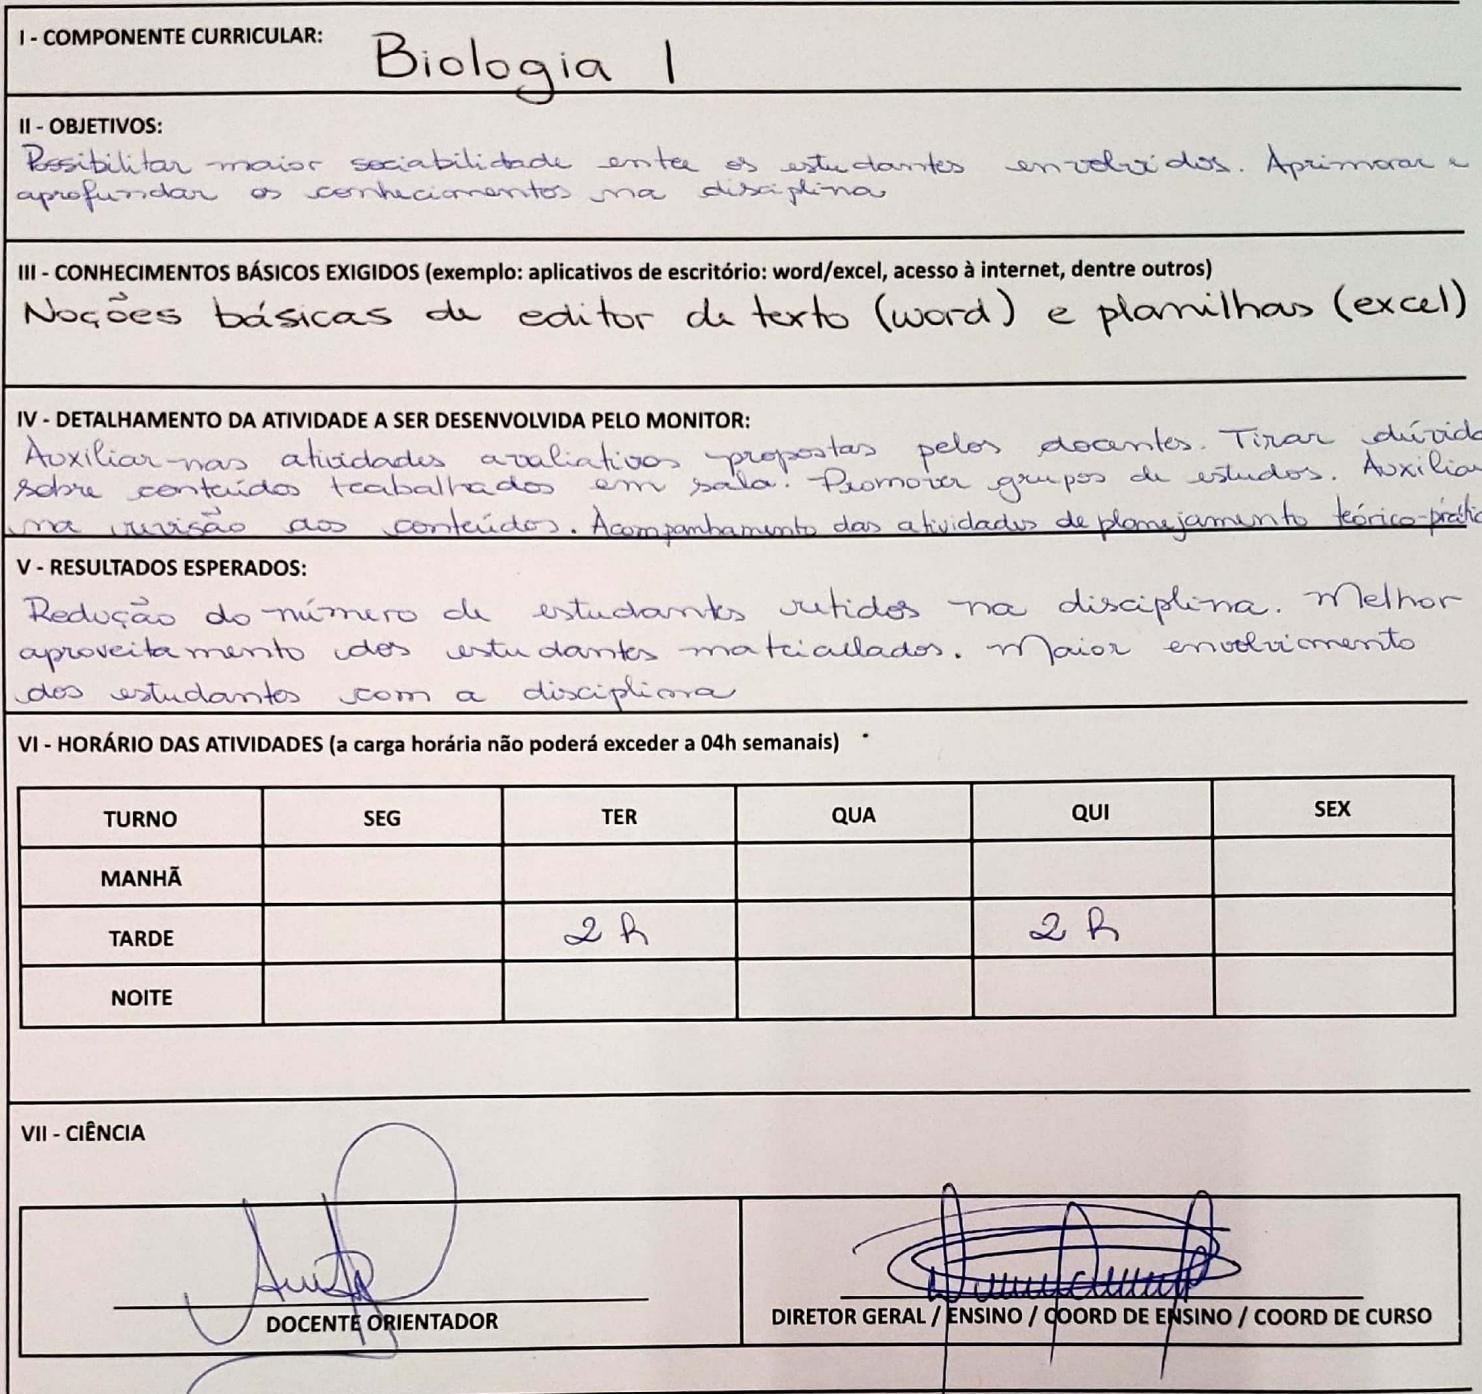 I - COMPONENTE CURRICULAR: Biologia 1
II - OBJETIVOS:
Possibilitar maior sociabilidade entre os estudantes envolvidos. Aprimorar e
aprofundar os conhecimentos na disciplina
III - CONHECIMENTOS BÁSICOS EXIGIDOS (exemplo: aplicativos de escritório: word/excel, acesso à internet, dentre outros)
Noções básicas de editor de texto (word) e planilhas (excel)
IV - DETALHAMENTO DA ATIVIDADE A SER DESENVOLVIDA PELO MONITOR:
Auxiliar nas atividades avaliativas propostas pelos docentes. Tirar dúvida
sobre conteúdos trabalhados em sala. Promover grupos de estudos. Auxiliar
na revisão dos conteúdos. Acompanhamento das atividades de planejamento teórico-prátic
V - RESULTADOS ESPERADOS:
Redução do número de estudantes retidos na disciplina. Melhor
aproveitamento dos estudantes matriculados. Maior envolvimento
dos estudantes com a disciplina
VI - HORÁRIO DAS ATIVIDADES (a carga horária não poderá exceder a 04h semanais)
TURNO SEG TER QUA QUI SEX
MANHÃ
TARDE 2 h 2 h
NOITE
VII - CIÊNCIA
DOCENTE ORIENTADOR DIRETOR GERAL / ENSINO / COORD DE ENSINO / COORD DE CURSO